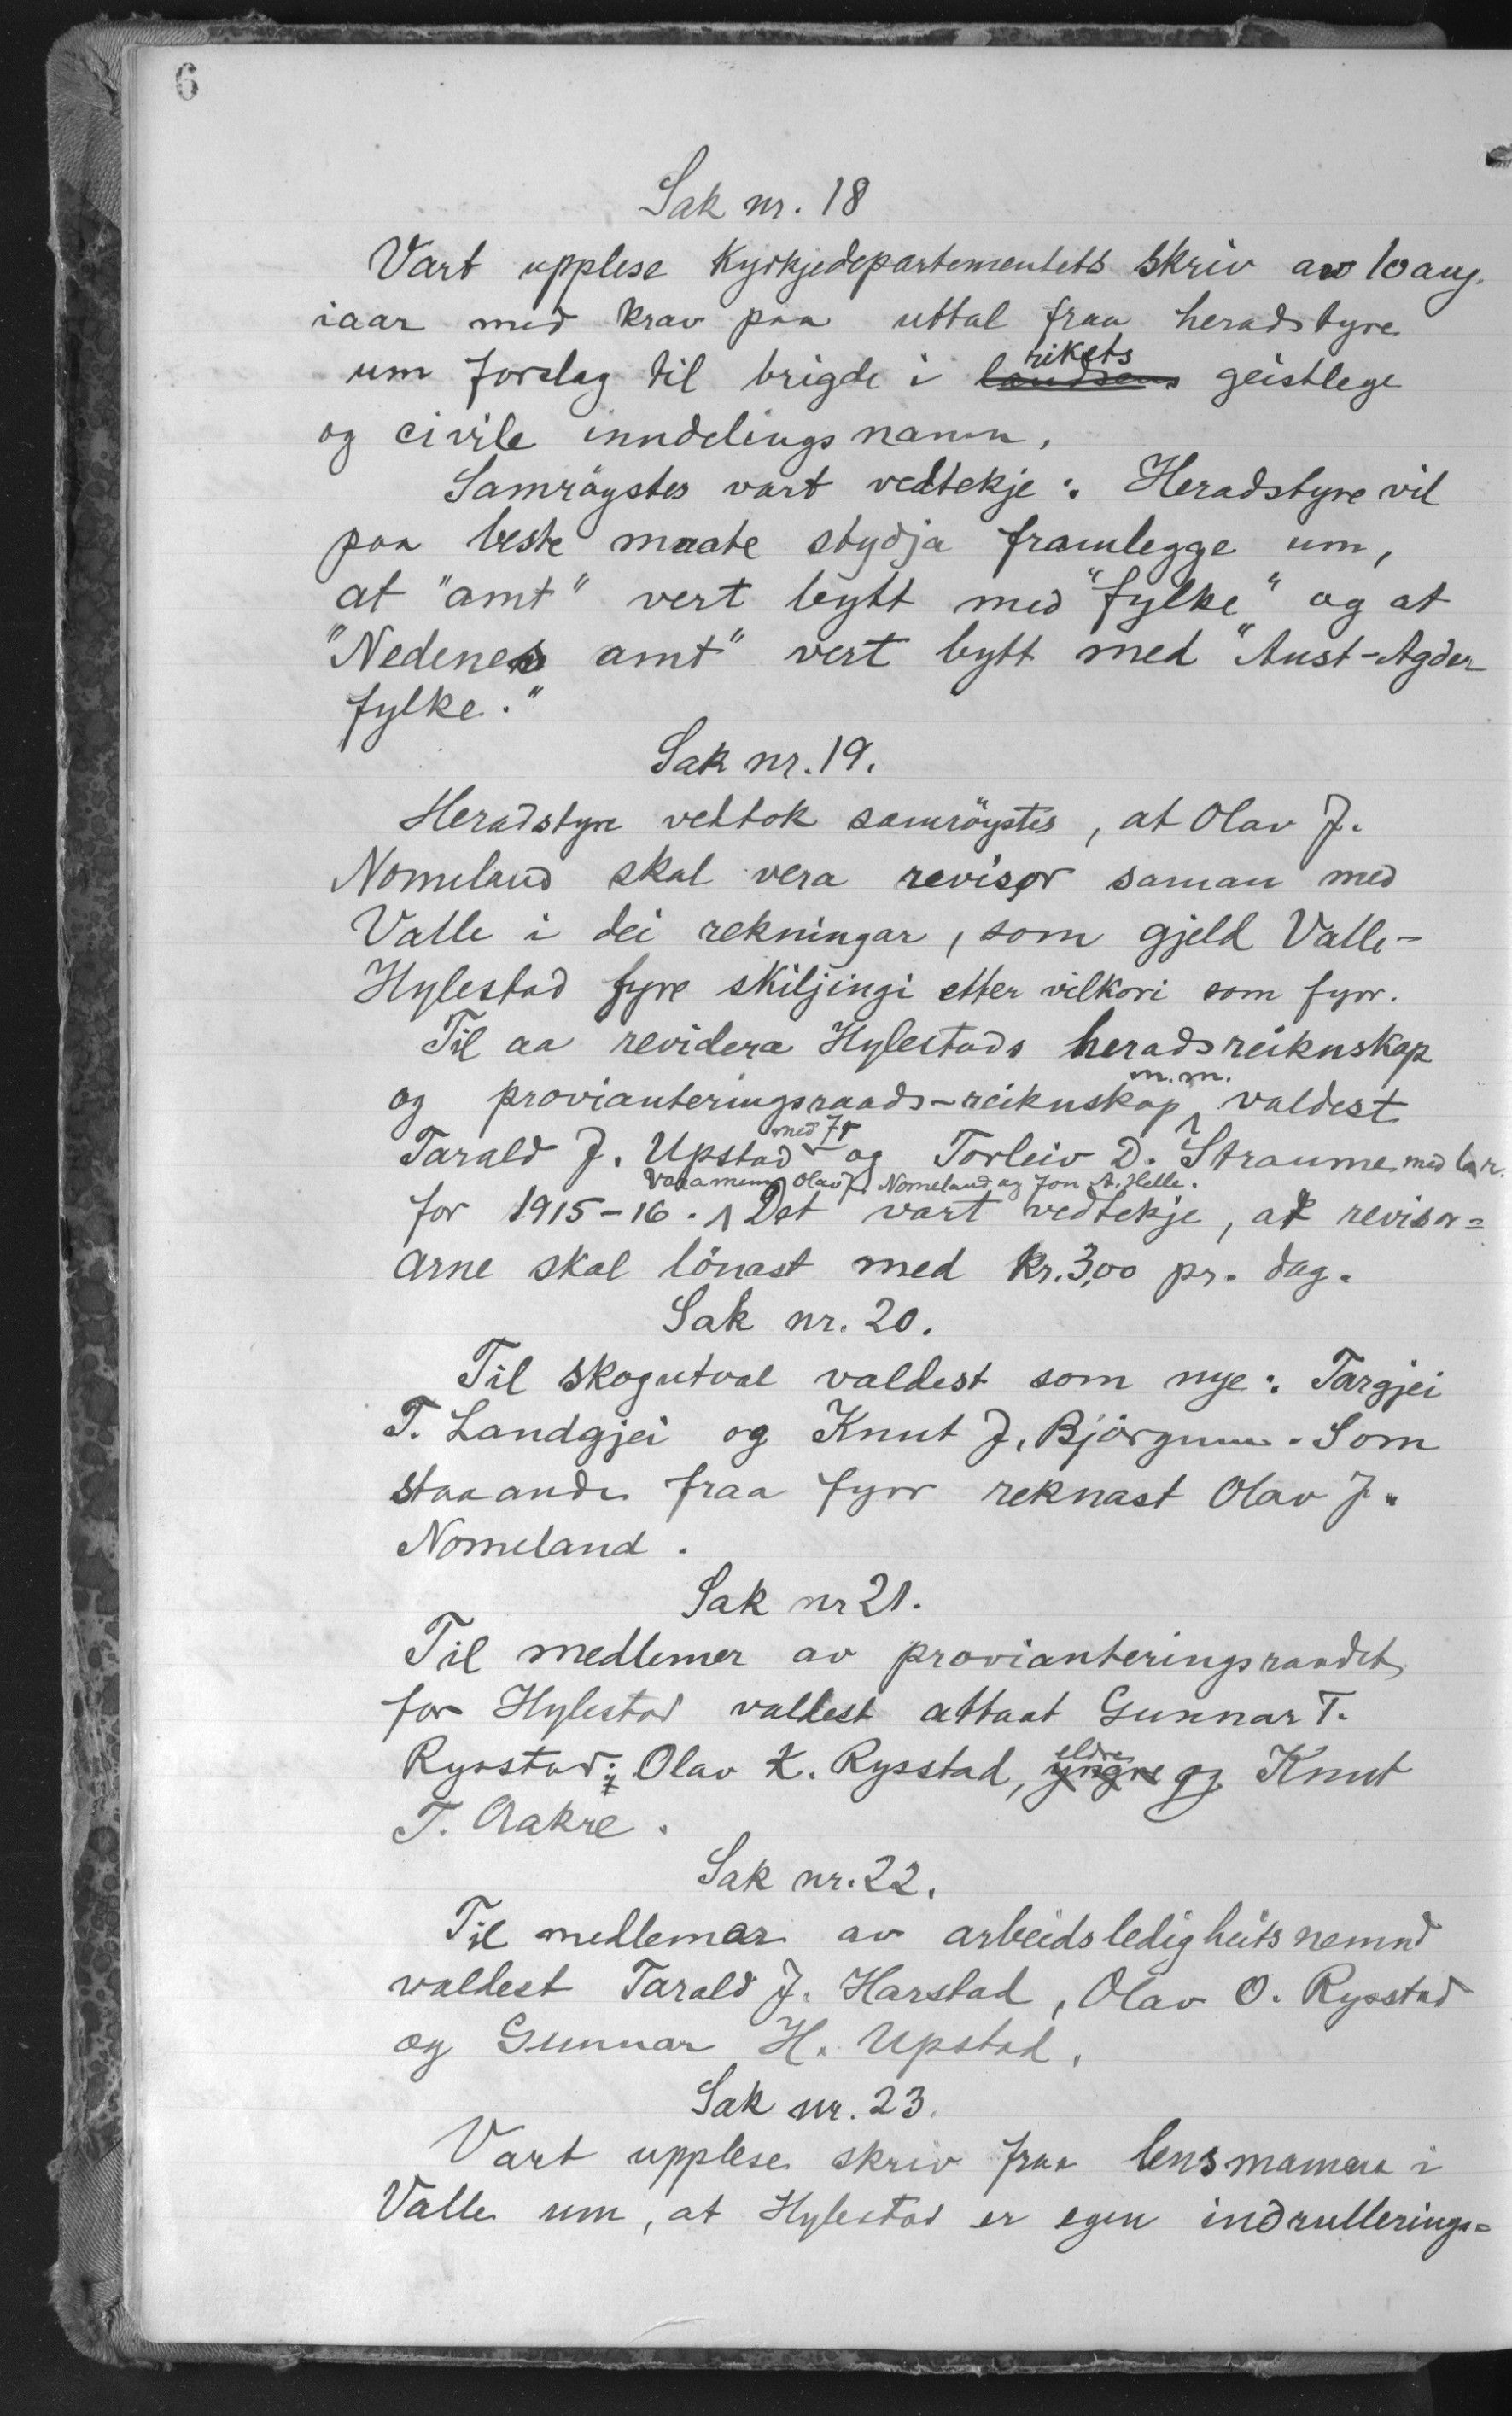 6
Sak nr. 18
Vart upplese Kyrkjedepartementets skriv av 10 aug.
iaar med krav paa uttal fraa heradstyre
um forslag til brigde i landsens rikets geistlege
og civile inndelings namn.
Samrøystes vart vedtekje: Heradstyre vil
paa beste maate stydja framlegge um,
at "amt" vert bytt med "fylke" og at
"Nedenes amt" vert bytt med "Aust-Agder
fylke."
Sak nr. 19.
Heradstyre vedtok samrøystes, at Olav J.
Nomeland skal vera revisor saman med
Valle i dei rekningar, som gjeld Valle-
Hylestad fyre skiljingi etter vilkori som fyrr.
Til aa revidera Hylestads heradsreiknskap
og provianteringsraads-reiknskap m.m. valdest
Tarald J. Upstad med 7 r og Torleiv D. Straume med 6 r.
Varamenn Olav J. Nomeland og Jon A. Helle.
for 1915-16. Det vart vedtekje, at revisor=
arne skal lönast med kr. 3,00 pr. dag.
Sak nr. 20.
Til skogutval valdest som nye: Targjei
T. Landgjei og Knut J. Björgum. Som
staaande fraa fyrr reknast Olav J.
Nomeland.
Sak nr 21.
Til medlemer av provianteringsraadet
for Hylestad valdest attaat Gunnar T.
Rysstad: Olav K. Rysstad, yngre eldre og Knut
T. Aakre.
Sak nr. 22.
Til medlemar av arbeidsledigheits nemnd
valdest Tarald J. Harstad, Olav O. Rysstad
og Gunnar H. Upstad.
Sak nr. 23.
Vart upplese skriv fraa lensmannen i
Valle um, at Hylestad er egen indrullerings=